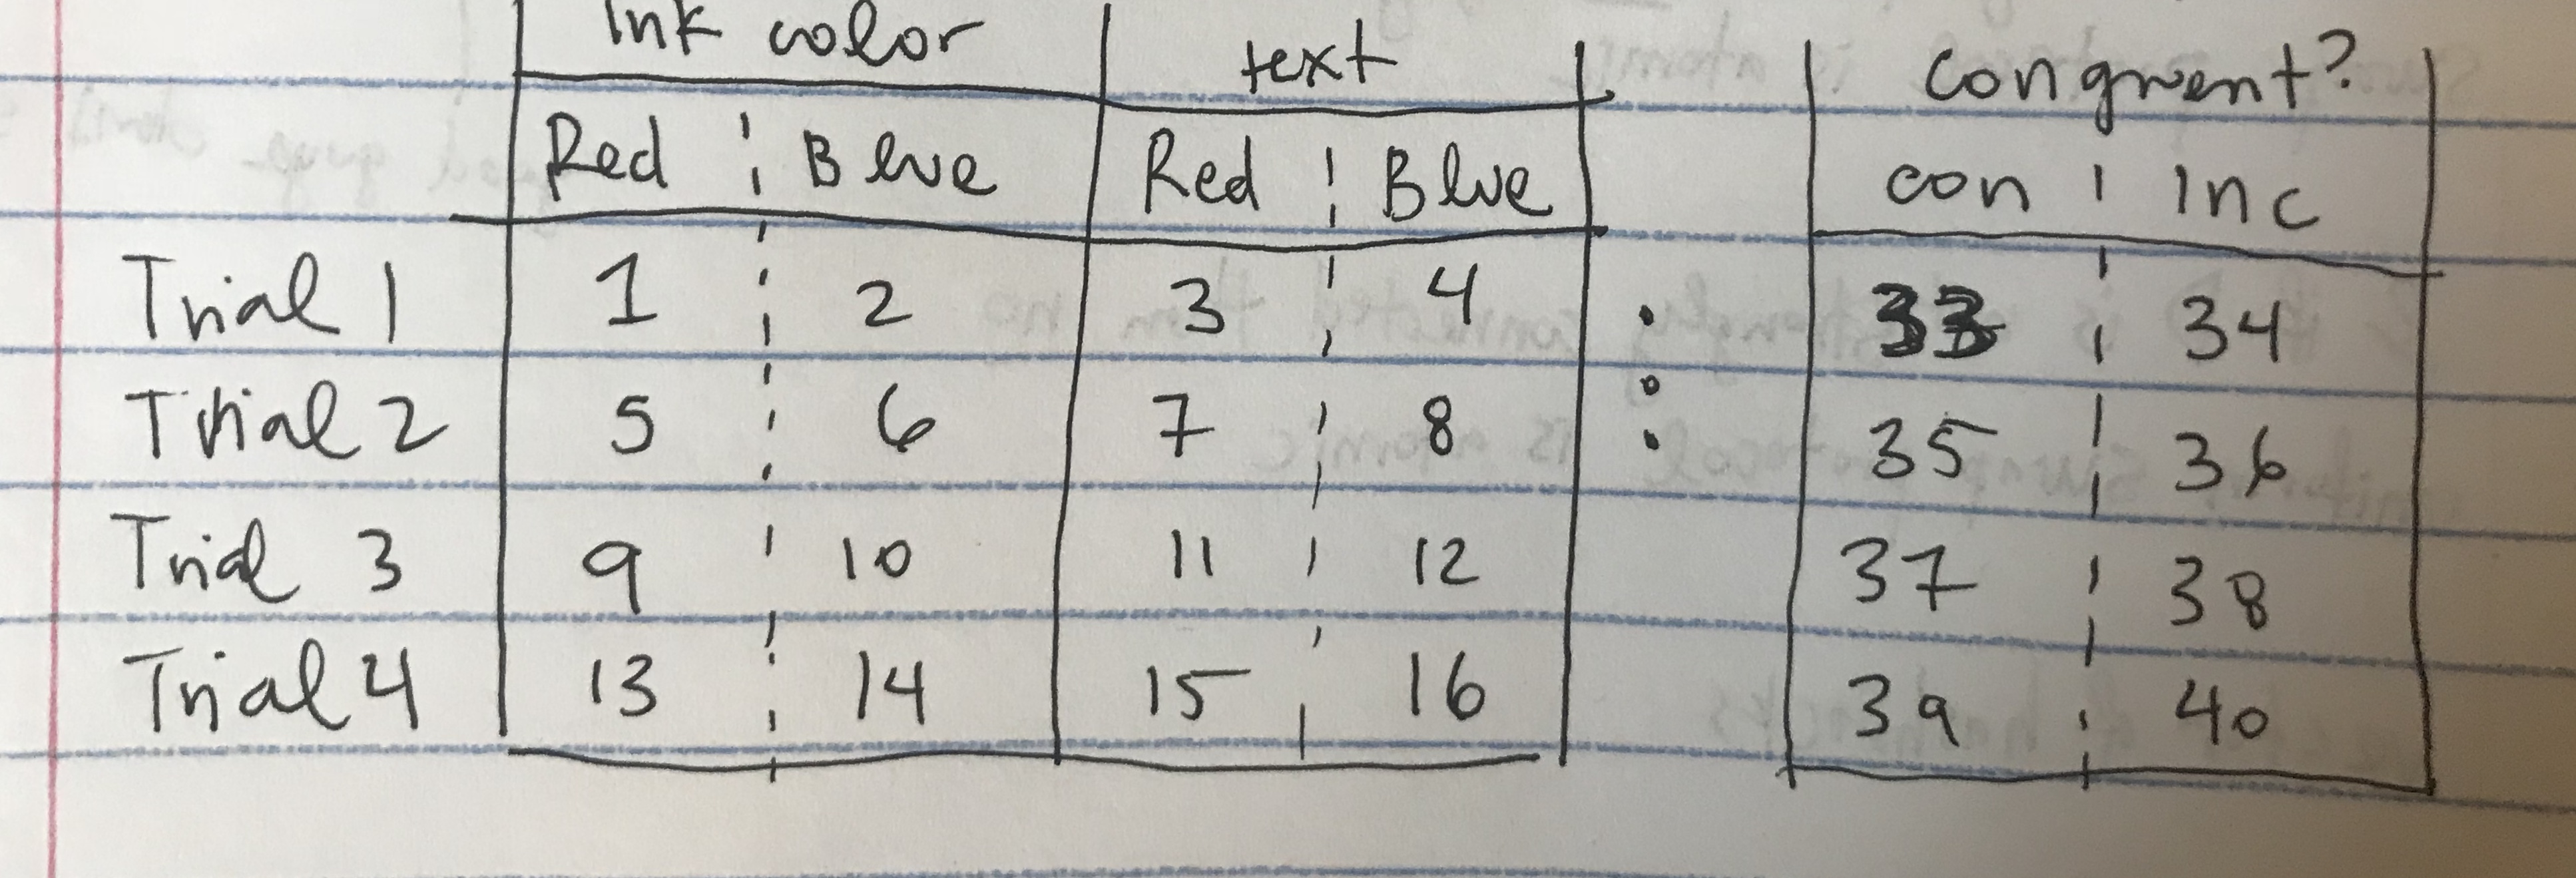 Ink color text congruent?
Red Blue Red Blue con Inc
Trial 1 1 2 3 4 33 34
Trial 2 5 6 7 8 35 36
Trial 3 9 10 11 12 37 38
Trial 4 13 14 15 16 39 40